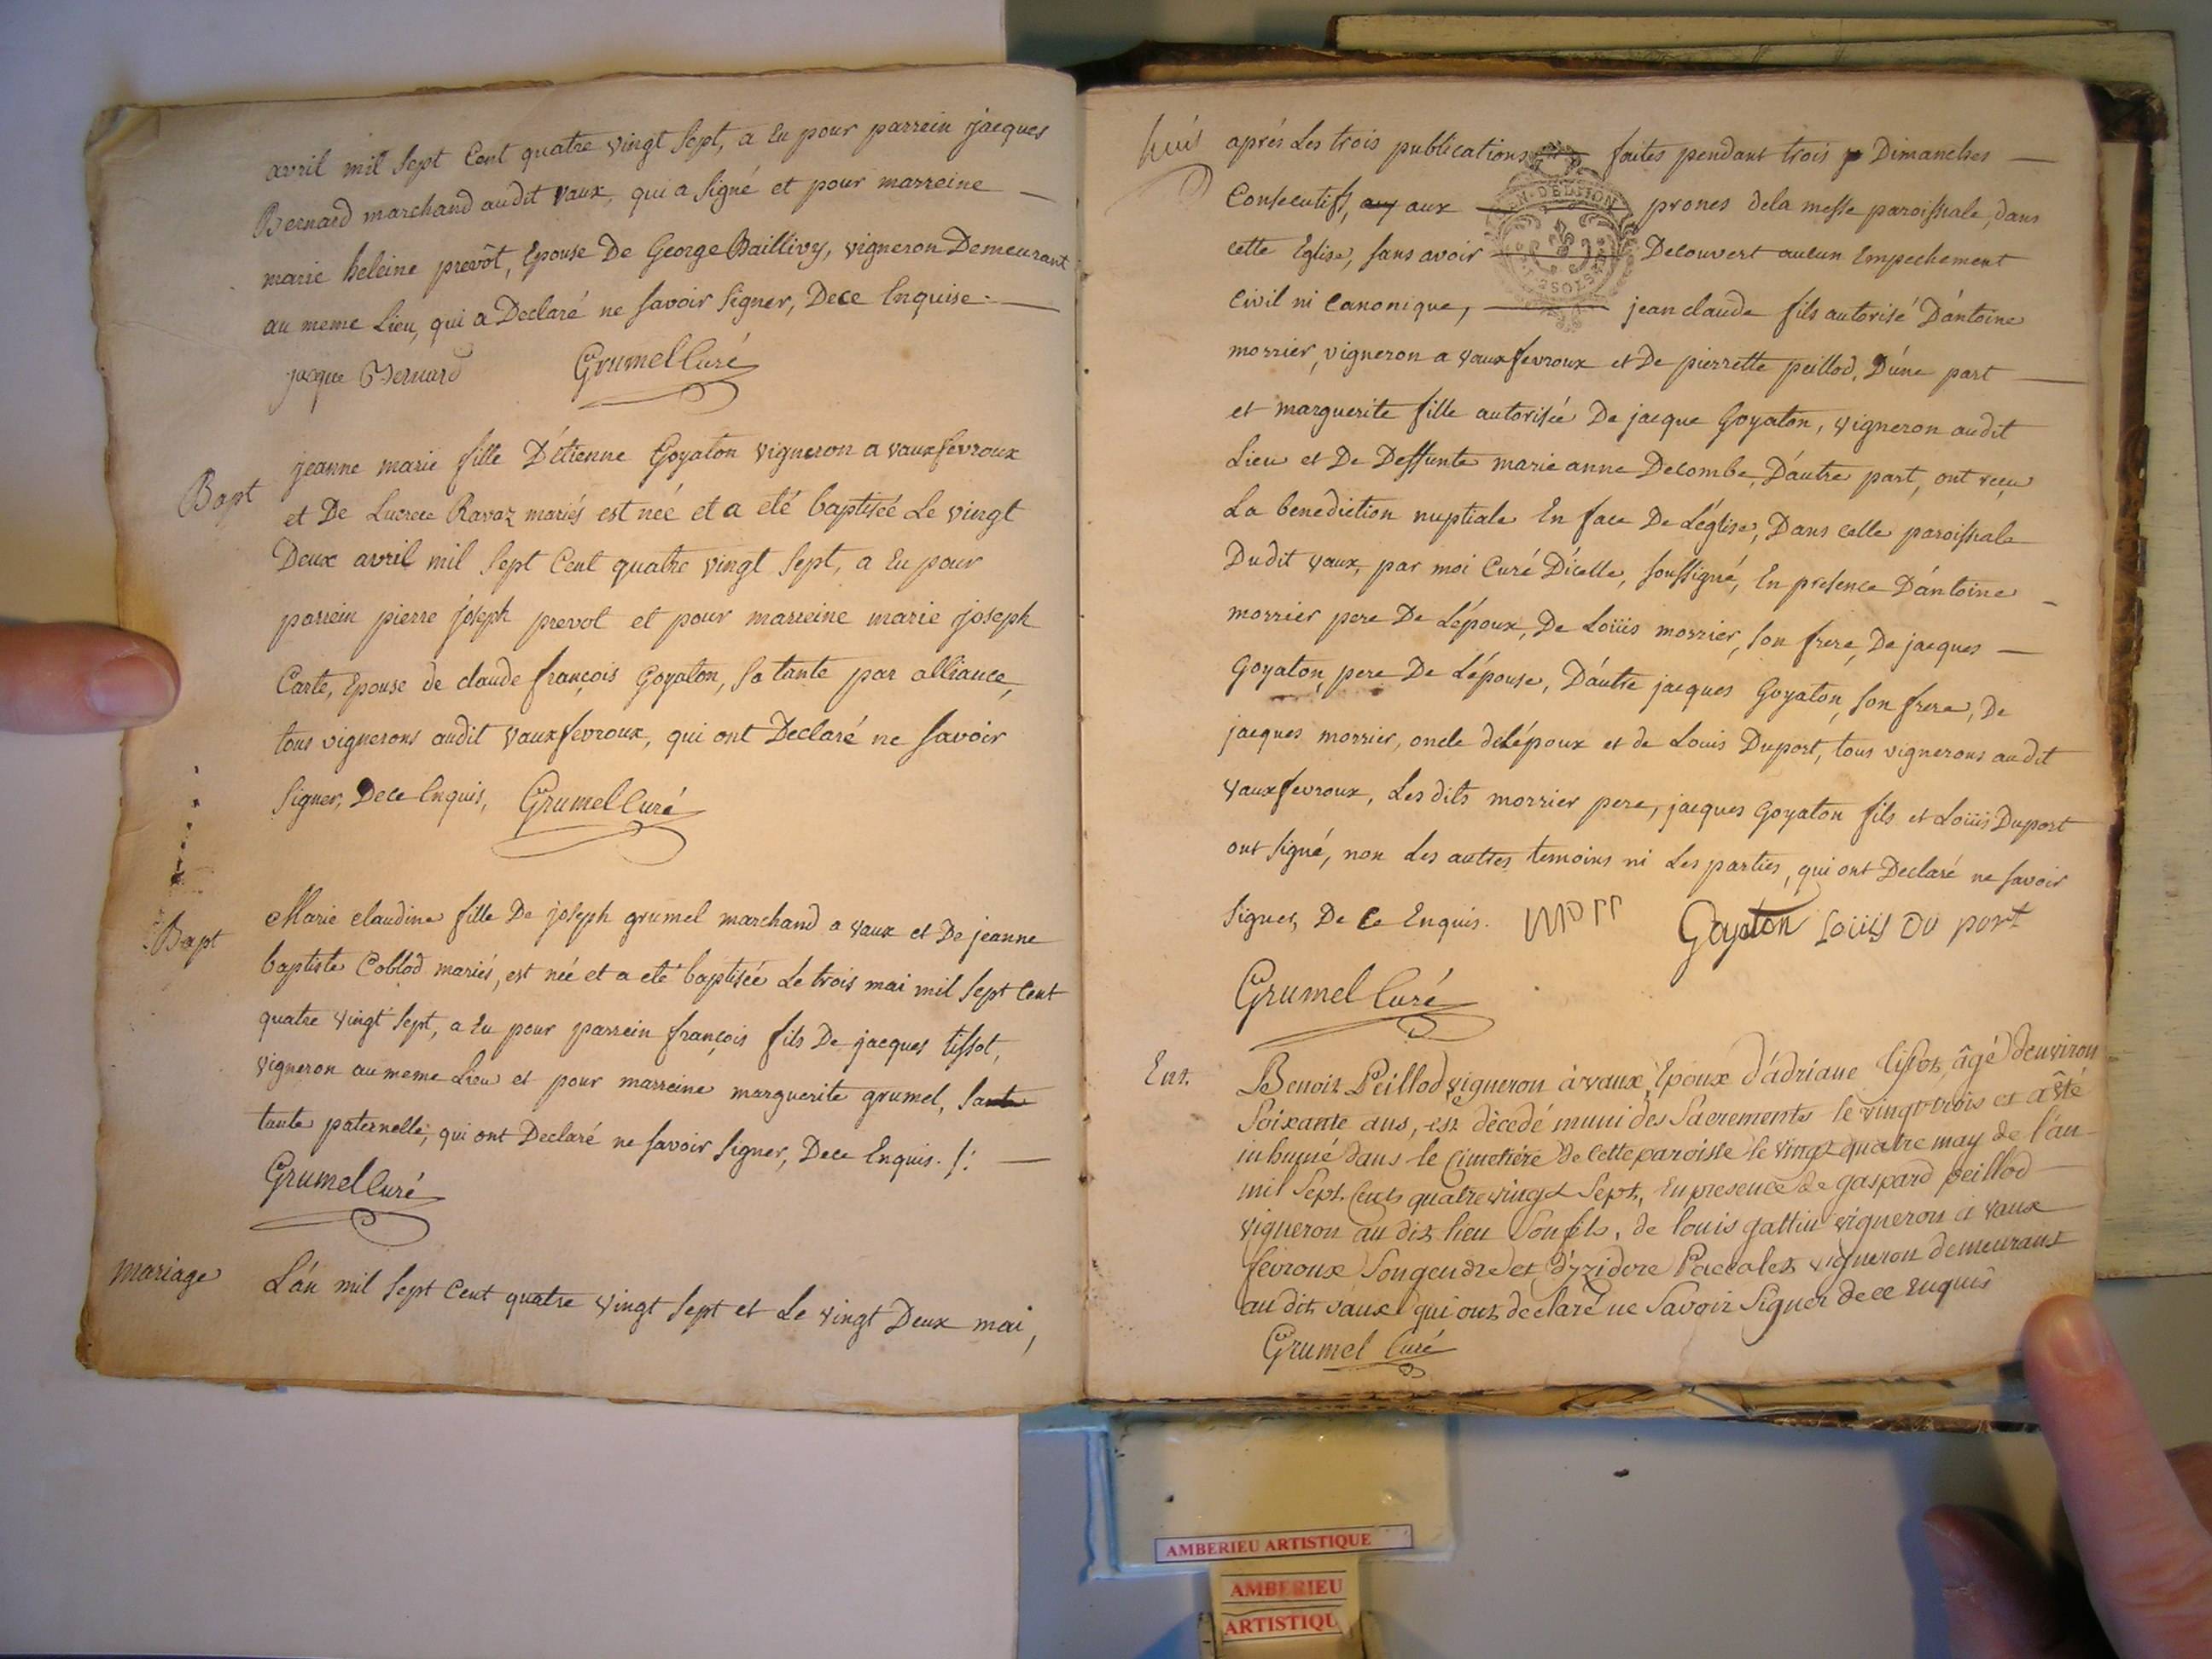 avril mil sept Cent quatre vingt Sept, a Eu pour parrein jacques
Bernard marchand audit vaux, qui a signé et pour marreine
marie heleine prevôt, Epouse De George Baillivy, vigneron Demeurant
au meme Lieu, qui a Declaré ne savoir signer, Dece Enquise.
jacque Bernard Grumel Curé
Bapt
jeanne marie fille D'étienne Goyaton vigneron a vauxfevroux
et De Lucrece Ravaz mariés est née et a eté baptiseé Le vingt
Deux avril mil sept Cent quatre vingt sept, a Eu pour
parrein pierre joseph prevot et pour marreine marie joseph
Carte, Epouse de claude françois Goyaton, sa tante par alliance,
tous vignerons audit vauxfevroux, qui ont Declaré ne savoir
signer, Dece Enquis, Grumel Curé
Bapt
Marie claudine fille De joseph grumel marchand a vaux et De jeanne
baptiste Coblod mariés, est née et a eté baptisée Le trois mai mil sept Cent
quatre vingt sept, a Eu pour parrein françois fils De jacques tissot,
vigneron au meme Lieu et pour marreine marguerite grumel, sa
tante paternelle, qui ont Declaré ne savoir signer, Dece Enquis. /:
Grumel Curé
mariage
L'án mil sept Cent quatre vingt sept et Le vingt Deux mai,
huit
aprés Les trois publications faites pendant trois Dimanches
Consecutifs, aux prones dela messe paroissiale, dans
cette Eglise, sans avoir Decouvert aucun Empechement
Civil ni Canonique, jean claude fils autorisé D'ántoine
morrier, vigneron a vauxfevroux et De pierrette peillod, D'úne part
et marguerite fille autorisée De jacque Goyaton, vigneron audit
Lieu et De Deffunte marie anne Decombe, D'áutre part, ont reçu
La benediction nuptiale En face De L'église, Dans celle paroissiale
Dudit vaux, par moi Curé D'icelle, soussigné, En presence D'ántoine
morrier pere De L'époux, De Loüis morrier, son frere, De jacques
Goyaton pere De L'épouse, D'áutre jacques Goyaton, son frere, De
jacques morrier, oncle deL'époux et de Louis Duport, tous vignerons audit
vauxfevroux, Lesdits morrier pere, jacques Goyaton fils et Loüis Duport
ont signé, non Les autres temoins ni Les parties, qui ont Declaré ne savoir
signer, De Ce Enquis. morr Goyaton Loüis DU port
Grumel Curé
Ent.
Benoit Peillod vigneron à vaux, Epoux d'ádriane tissot, âgé d'environ
soixante ans, est décedé muni des sacrements le vingt trois et a êté
inhumé dans le Cimetiére de cette paroisse le vingt quatre may de l'án
mil sept Cents quatre vingt sept, En presence de gaspard peillod
vigneron au dit lieu son fils, de louis gattin vigneron à vaux
fevroux son gendre et d'yzidore Paccalet vigneron demeurant
au dit vaux qui ont declaré ne savoir signer de ce Enquis
Grumel Curé
AMBERIEU ARTISTIQUE
AMBERIEU
ARTISTIQU